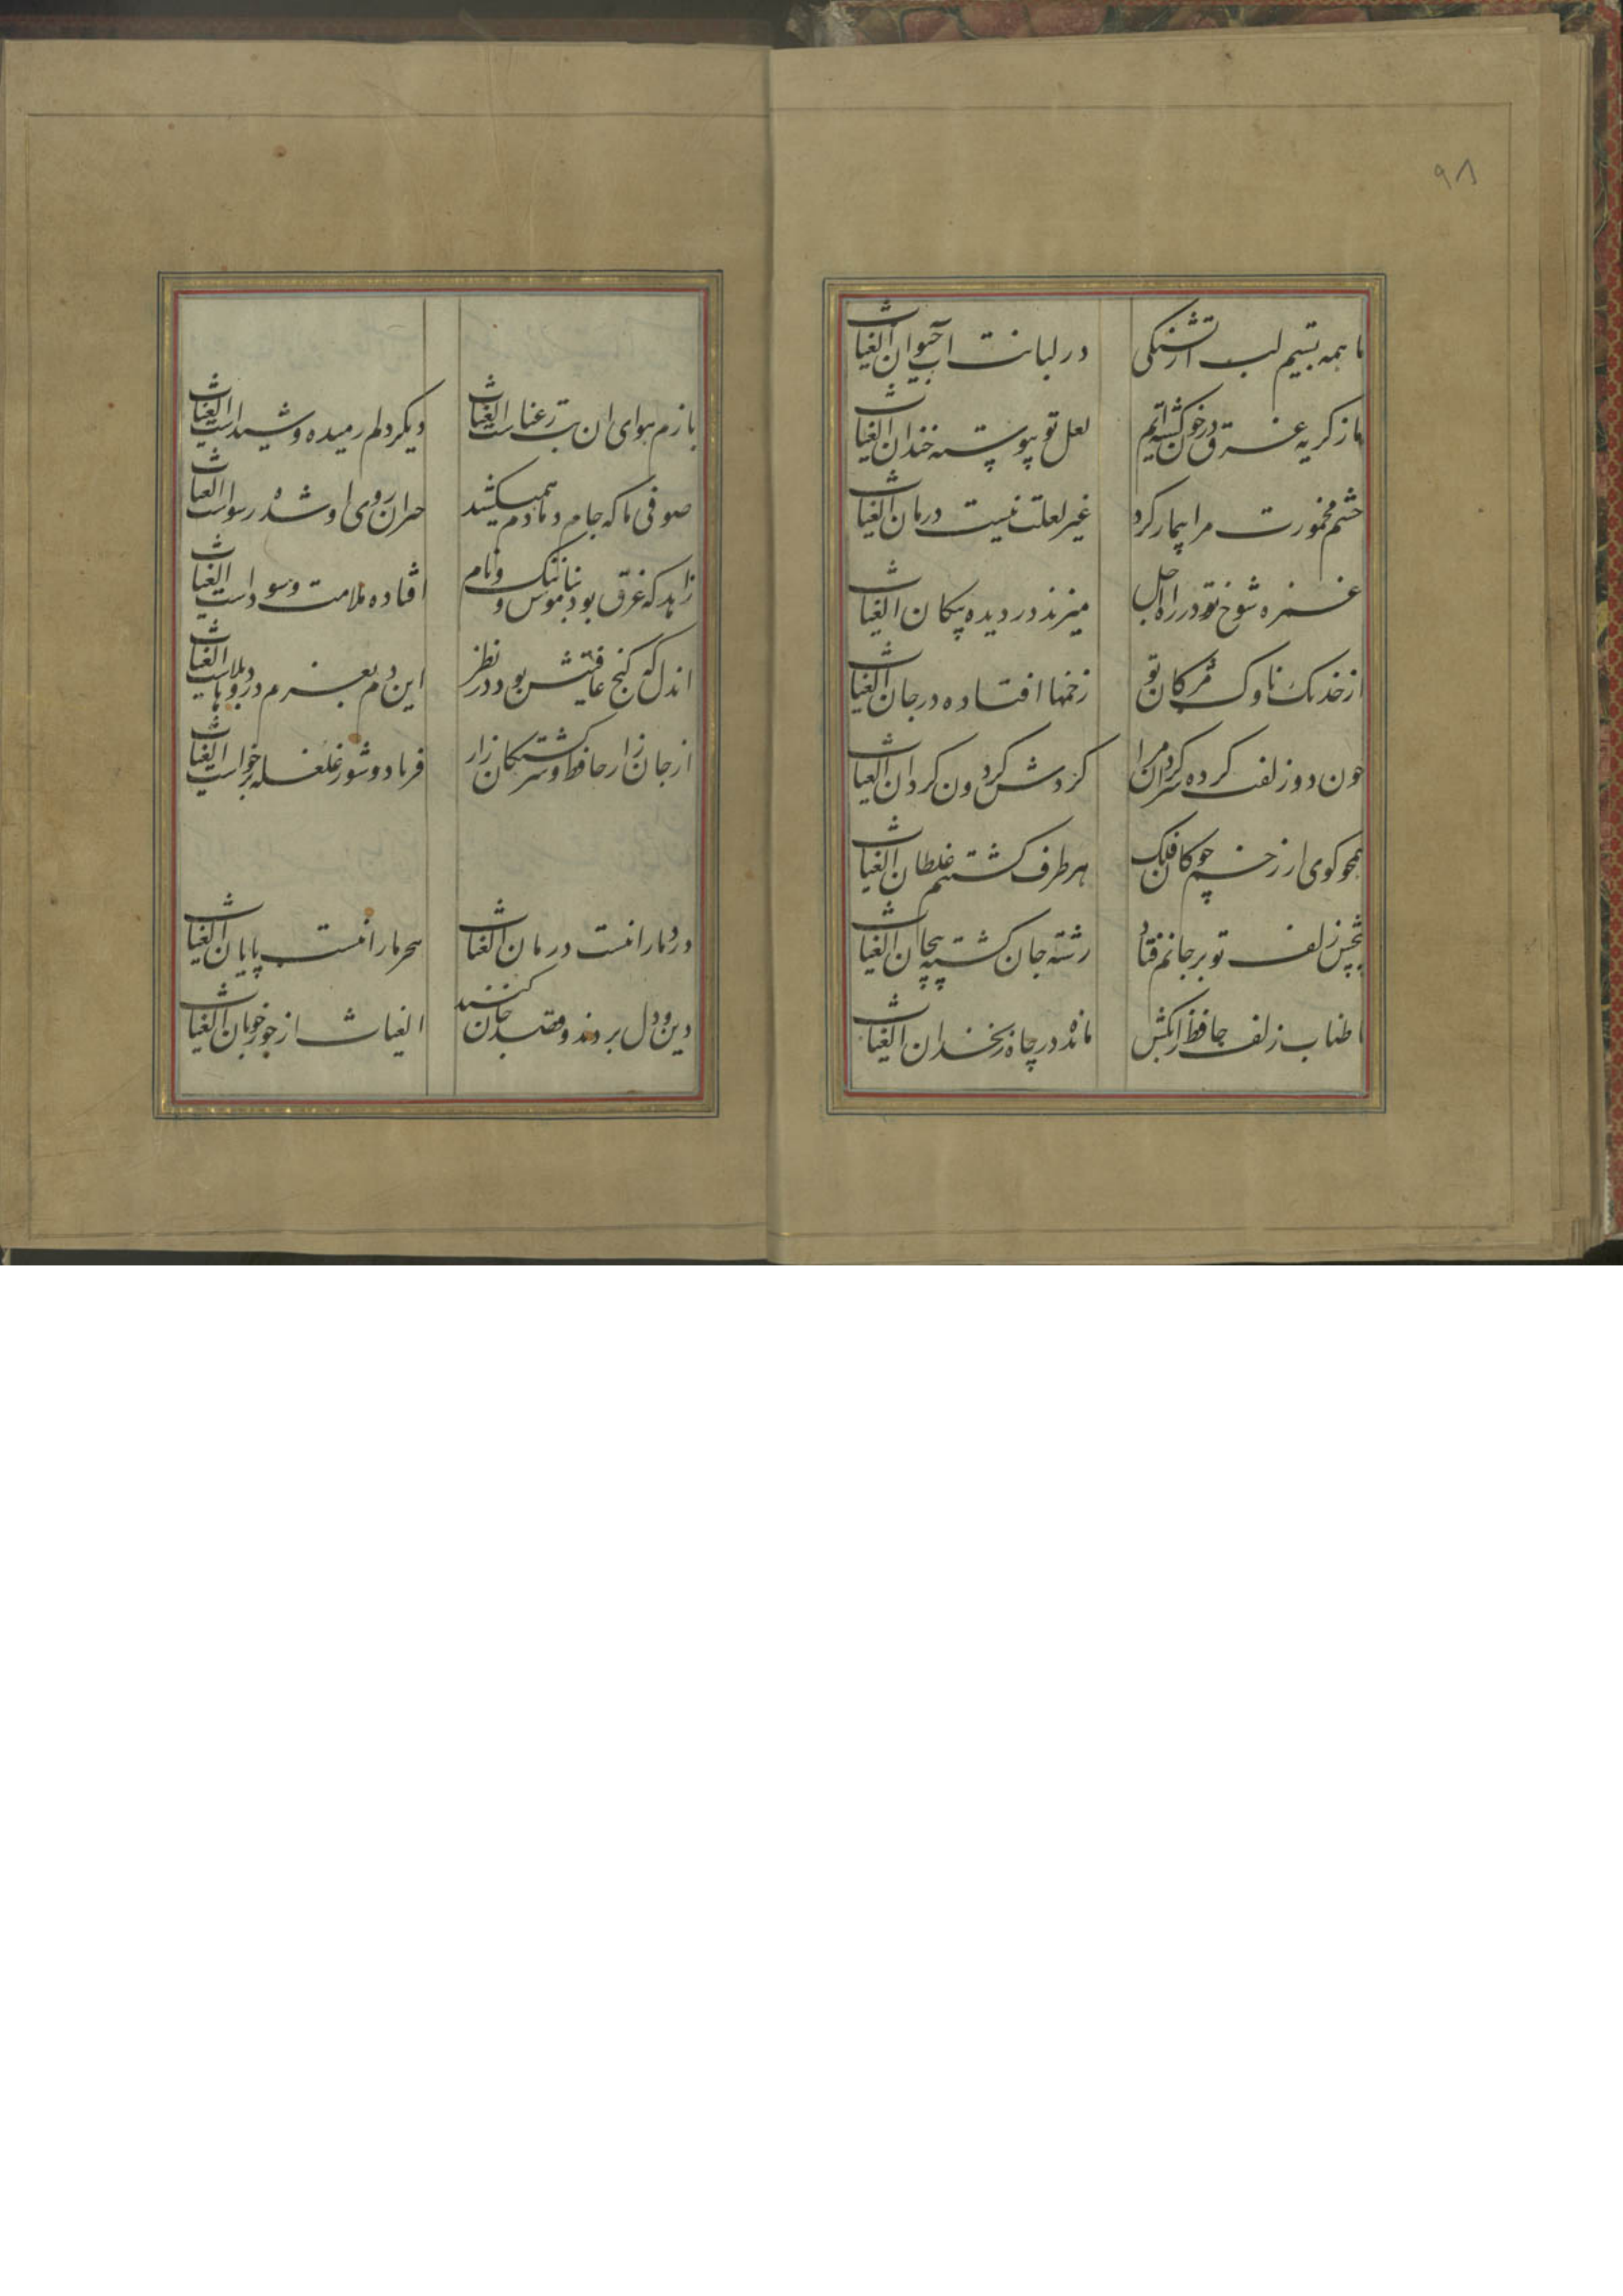 ۹۸
ما همه بستیم لب از تشنگی در لبانت آب حیوان الغیاث
ما ز کریه غرق در خون کشته‌ایم لعل تو پیوسته خندان الغیاث
چشم مخمورت مرا بیمار کرد غیر لعلت نیست درمان الغیاث
غمزه شوخ تو در راه اجل میزند در دیده پیکان الغیاث
از خدنک ناوک مژکان تو زخمها افتاده در جان الغیاث
چون دو زلفت کرده سرکردان مرا کردش کردون کردان الغیاث
همچو کوی از زخم چوکان فلک هر طرف کشتیم غلطان الغیاث
پیچش زلف تو بر جانم فتاد رشته جان کشته پیچان الغیاث
اطناب زلف حافظ را بکش مانده در چاه زنخدان الغیاث
بازم هوای ان بت رعناست الغیاث دیکر دلم رمیده و شیداست الغیاث
صوفی ما که جام دمادم همیکشید حیران روی او شده رسواست الغیاث
زاهد که غرق بود بناموس و ننک و نام افتاده ملامت و سوداست الغیاث
اندل که کنج عافیتش بود در نظر این دم بعزم درد و بلاهاست الغیاث
از جان زار حافظ و سرکشتکان زار فریاد و شور غلغله برخواست الغیاث
درد ما را نیست درمان الغیاث هجر ما را نیست پایان الغیاث
دین و دل بردند و قصد جان کنند الغیاث از جور خوبان الغیاث